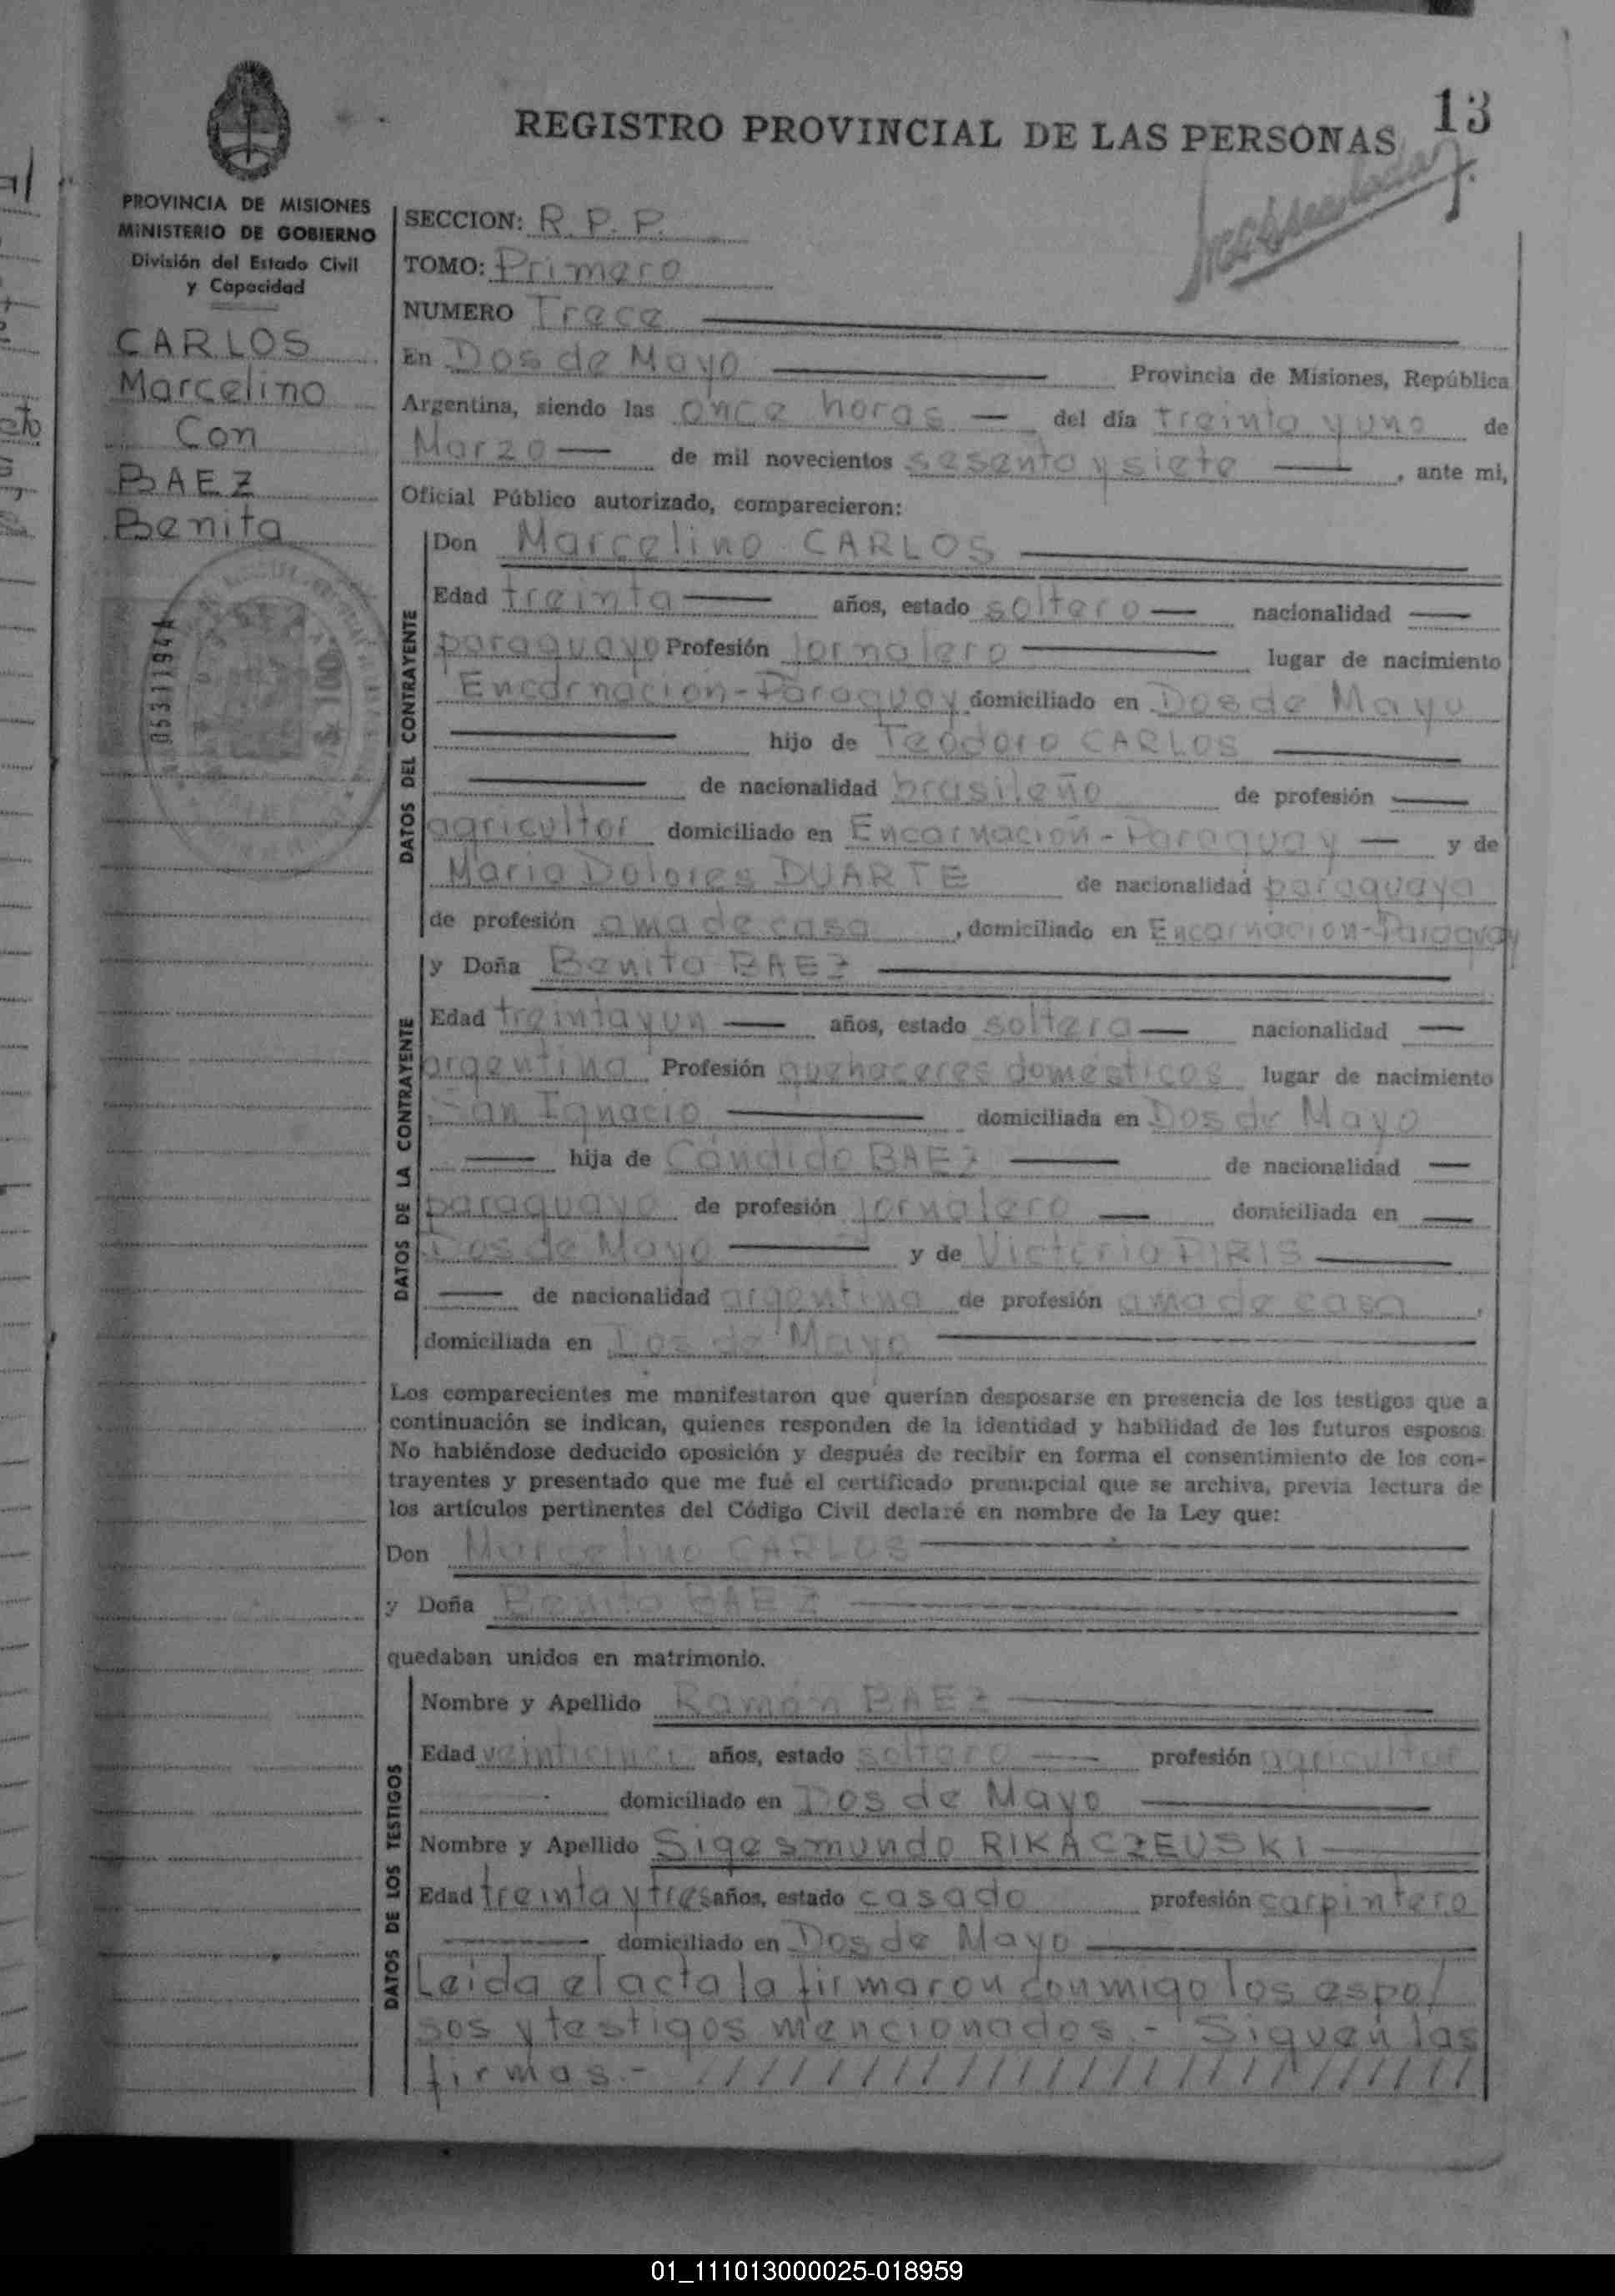 13
REGISTRO PROVINCIAL DE LAS PERSONAS
PROVINCIA DE MISIONES
MINISTERIO DE GOBIERNO
División del Estado Civil
y Capacidad
CARLOS
Marcelino
Con
BAEZ
Benita
SECCION: R. P. P.
TOMO: Primero
NUMERO Trece
En Dos de Mayo Provincia de Misiones, República
Argentina, siendo las once horas — del día treinta y uno de
Marzo — de mil novecientos sesenta y siete —, ante mi,
Oficial Público autorizado, comparecieron:
DATOS DEL CONTRAYENTE
Don Marcelino CARLOS
Edad treinta — años, estado soltero — nacionalidad —
paraguayo Profesión Jornalero — lugar de nacimiento
Encarnación - Paraguay domiciliado en Dos de Mayo
— hijo de Teodoro CARLOS —
— de nacionalidad brasileño de profesión —
agricultor domiciliado en Encarnación - Paraguay — y de
Maria Dolores DUARTE de nacionalidad paraguaya
de profesión ama de casa, domiciliado en Encarnación - Paraguay
DATOS DE LA CONTRAYENTE
y Doña Benita BAEZ —
Edad treinta y un — años, estado soltera — nacionalidad —
argentina Profesión quehaceres domésticos lugar de nacimiento
San Ignacio — domiciliada en Dos de Mayo
— hija de Cándido BAEZ — de nacionalidad —
paraguayo de profesión jornalero — domiciliada en —
Dos de Mayo — y de Victoria PIRIS —
— de nacionalidad argentina de profesión ama de casa,
domiciliada en Dos de Mayo —
Los comparecientes me manifestaron que querían desposarse en presencia de los testigos que a
continuación se indican, quienes responden de la identidad y habilidad de los futuros esposos.
No habiéndose deducido oposición y después de recibir en forma el consentimiento de los con-
trayentes y presentado que me fué el certificado prenupcial que se archiva, previa lectura de
los artículos pertinentes del Código Civil declaré en nombre de la Ley que:
Don Marcelino CARLOS —
y Doña Benita BAEZ —
quedaban unidos en matrimonio.
DATOS DE LOS TESTIGOS
Nombre y Apellido Ramón BAEZ —
Edad veinticinco años, estado soltero — profesión agricultor
domiciliado en Dos de Mayo —
Nombre y Apellido Sigesmundo RIKACZEUSKI —
Edad treinta y tres años, estado casado profesión carpintero
— domiciliado en Dos de Mayo —
Leida el acta la firmaron conmigo los espo/
sos y testigos mencionados. - Siguen las
firmas. - /////////////////////////
01_111013000025-018959